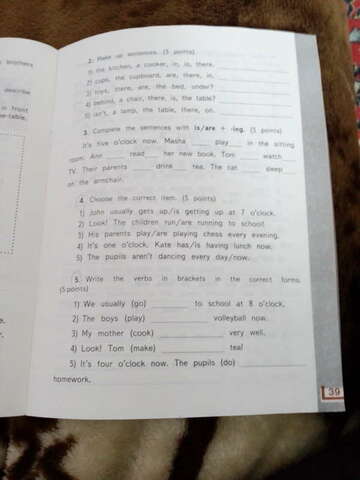 brothers
describe
in front
e-table.
2. Make up sentences. (5 points)
1) the kitchen, a cooker, in, is, there.
2) cups, the cupboard, are, there, in,
3) toys, there, are, the bed, under?
4) behind, a chair, there, is, the table?
5) isn't, a lamp, the table, there, on.
3. Complete the sentences with is/are + -ing. (5 points)
It's five o'clock now. Masha ____ play ____ in the sitting
room. Ann ____ read ____ her new book. Tom ____ watch ____
TV. Their parents ____ drink ____ tea. The cat ____ sleep ____
on the armchair.
4. Choose the correct item. (5 points)
1) John usually gets up/is getting up at 7 o'clock.
2) Look! The children run/are running to school.
3) His parents play/are playing chess every evening.
4) It's one o'clock. Kate has/is having lunch now.
5) The pupils aren't dancing every day/now.
5. Write the verbs in brackets in the correct forms.
(5 points)
1) We usually (go) ________ to school at 8 o'clock.
2) The boys (play) ________ volleyball now.
3) My mother (cook) ________ very well.
4) Look! Tom (make) ________ tea!
5) It's four o'clock now. The pupils (do) ________
homework.
39